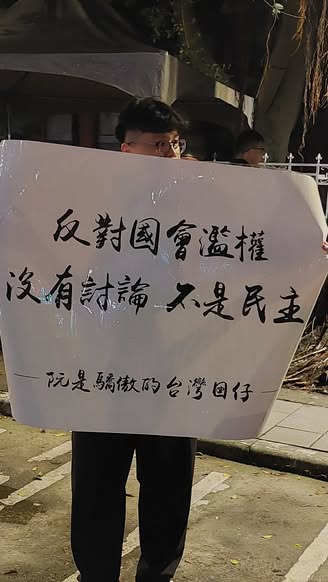 反對國會濫權
沒有討論 不是民主
—阮是驕傲的台灣囡仔—